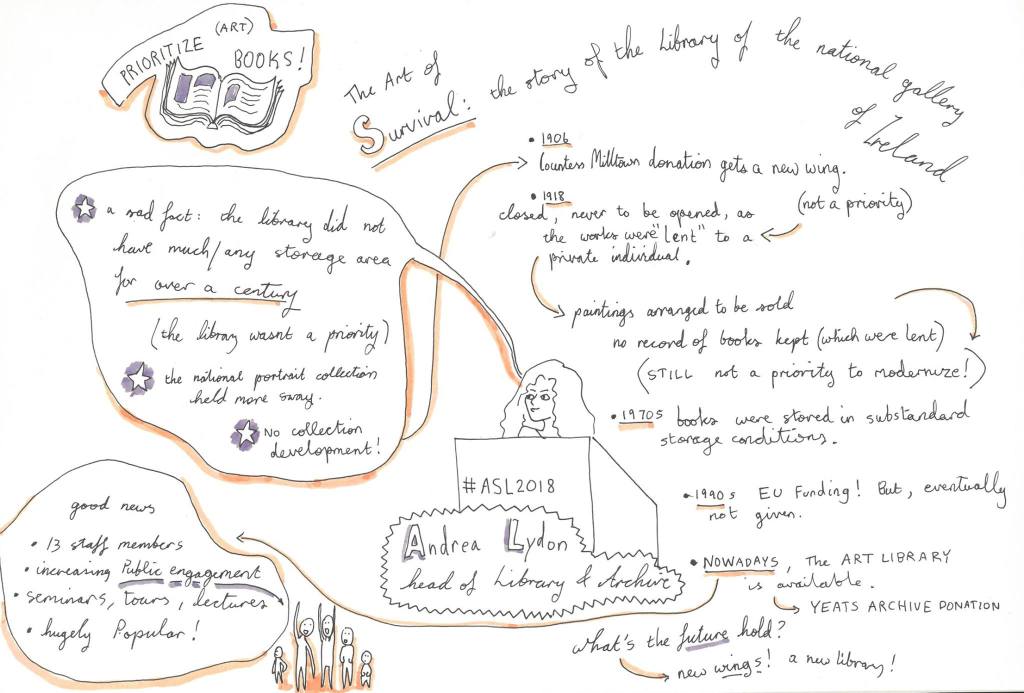 PRIORITIZE (ART) BOOKS!
The Art of
Survival: the story of the Library of the national gallery
of Ireland
• 1906
Countess Milltown donation gets a new wing.
• 1918
(not a priority)
closed, never to be opened, as
the works were "lent" to a
private individual.
paintings arranged to be sold
no record of books kept (which were lent)
(STILL not a priority to modernize!)
• 1970s books were stored in substandard
storage conditions.
• 1990s EU Funding! But, eventually
not given.
• NOWADAYS, THE ART LIBRARY
is available.
YEATS ARCHIVE DONATION
what's the future hold?
new wings! a new library!
a sad fact: the library did not
have much/any storage area
for over a century
(the library wasnt a priority)
the national portrait collection
held more sway.
NO collection
development!
#ASL2018
Andrea Lydon
head of Library & Archive
good news
• 13 staff members
• increasing Public engagement
• seminars, tours, lectures
• hugely Popular!